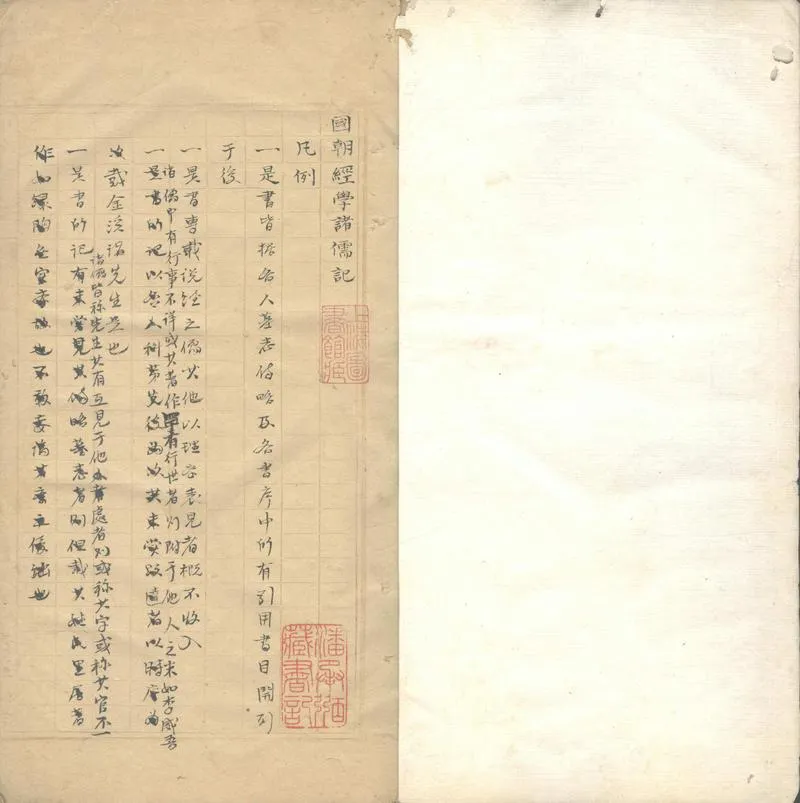 國朝經學諸儒記
凡例
一是書皆據各人墓志傳略及各書序中所有引用書目開列
于後
一是書專載說經之儒其他以理學表見者概不收入
諸儒中有行事不詳或其著作罕有行世者則附于他人之末如李成
一是書所記以各人科第先後為次其未登者以時序為
次戴金溪諸先生是也
諸儒皆稱先生其有互見于他處者則或稱其字或稱其官不一
一是書所記有未嘗見其傳略墓志者則但載其姓氏里居著
作如也不敢也
上海圖書館藏
潘承弼藏書記